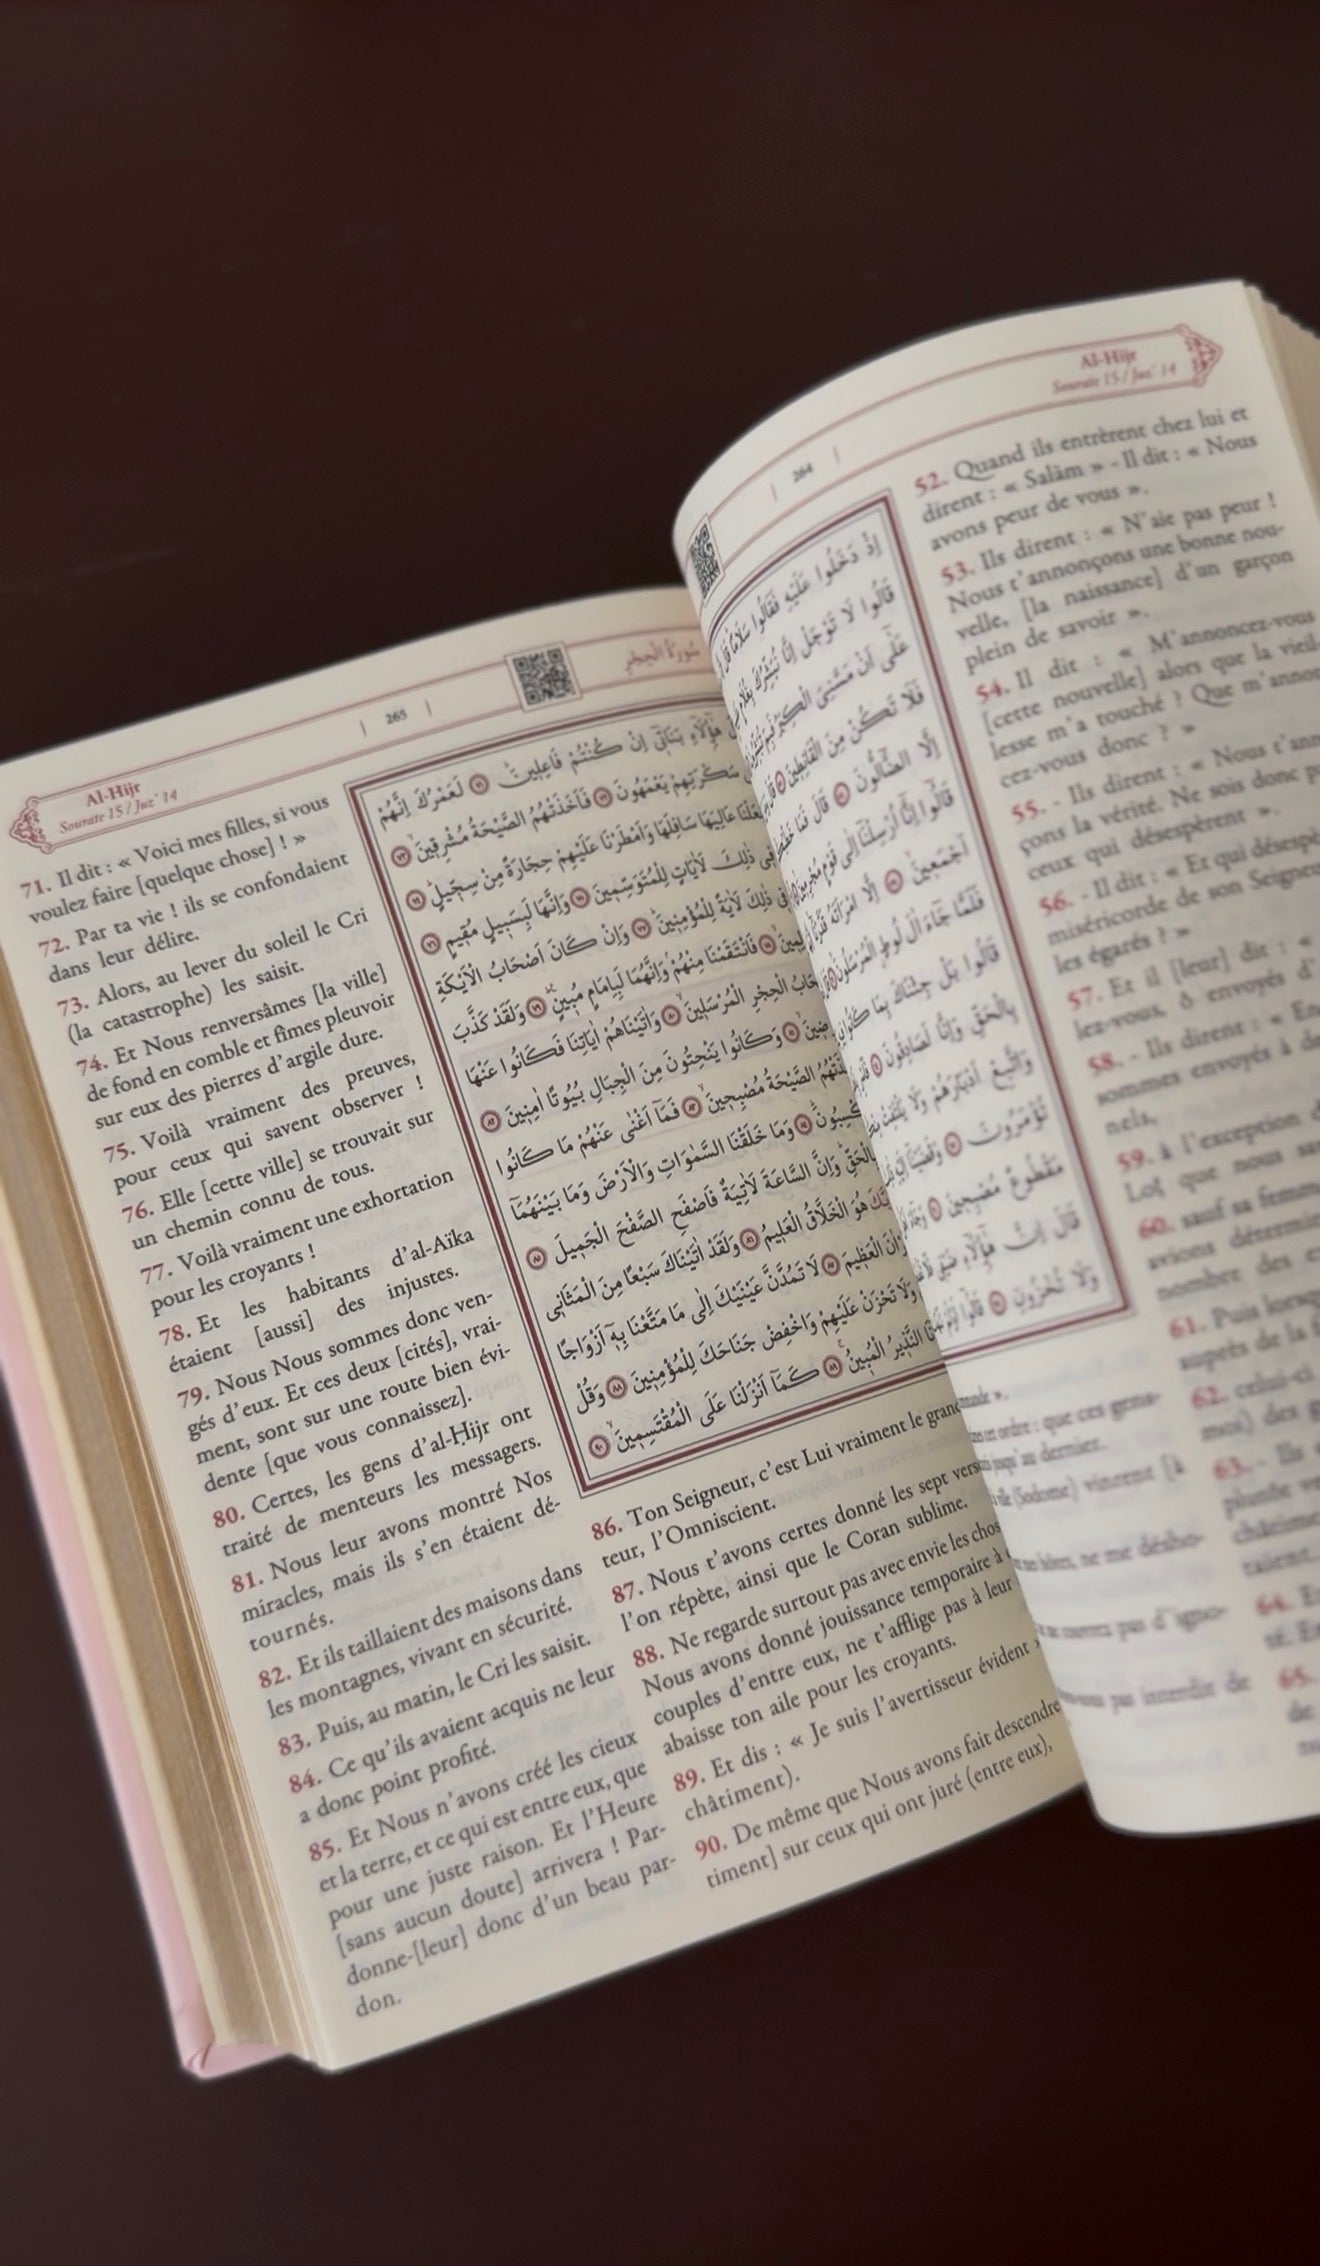 Al-Hijr
Sourate 15 / Juz' 14
265
سُورَةُ الْحِجْرِ
71. Il dit : « Voici mes filles, si vous
voulez faire [quelque chose] ! »
72. Par ta vie ! ils se confondaient
dans leur délire.
73. Alors, au lever du soleil le Cri
(la catastrophe) les saisit.
74. Et Nous renversâmes [la ville]
de fond en comble et fîmes pleuvoir
sur eux des pierres d'argile dure.
75. Voilà vraiment des preuves,
pour ceux qui savent observer !
76. Elle [cette ville] se trouvait sur
un chemin connu de tous.
77. Voilà vraiment une exhortation
pour les croyants !
78. Et les habitants d'al-Aïka
étaient [aussi] des injustes.
79. Nous Nous sommes donc ven-
gés d'eux. Et ces deux [cités], vrai-
ment, sont sur une route bien évi-
dente [que vous connaissez].
80. Certes, les gens d'al-Ḥijr ont
traité de menteurs les messagers.
81. Nous leur avons montré Nos
miracles, mais ils s'en étaient dé-
tournés.
82. Et ils taillaient des maisons dans
les montagnes, vivant en sécurité.
83. Puis, au matin, le Cri les saisit.
84. Ce qu'ils avaient acquis ne leur
a donc point profité.
85. Et Nous n'avons créé les cieux
et la terre, et ce qui est entre eux, que
pour une juste raison. Et l'Heure
[sans aucun doute] arrivera ! Par-
donne-[leur] donc d'un beau par-
don.
هٰٓؤُلَٓاءِ بَنَاتٖٓي اِنْ كُنْتُمْ فَاعِلٖينَ ٧١ لَعَمْرُكَ اِنَّهُمْ
سَكْرَتِهِمْ يَعْمَهُونَ ٧٢ فَاَخَذَتْهُمُ الصَّيْحَةُ مُشْرِقٖينَ ٧٣
عَالِيَهَا سَافِلَهَا وَاَمْطَرْنَا عَلَيْهِمْ حِجَارَةً مِنْ سِجّٖيلٍ ٧٤
فٖي ذٰلِكَ لَاٰيَاتٍ لِلْمُتَوَسِّمٖينَ ٧٥ وَاِنَّهَا لَبِسَبٖيلٍ مُقٖيمٍ ٧٦
فٖي ذٰلِكَ لَاٰيَةً لِلْمُؤْمِنٖينَ ٧٧ وَاِنْ كَانَ اَصْحَابُ الْاَيْكَةِ
٧٨ فَانْتَقَمْنَا مِنْهُمْ وَاِنَّهُمَا لَبِاِمَامٍ مُبٖينٍ ٧٩ وَلَقَدْ كَذَّبَ
الْحِجْرِ الْمُرْسَلٖينَ ٨٠ وَاٰتَيْنَاهُمْ اٰيَاتِنَا فَكَانُوا عَنْهَا
٨١ وَكَانُوا يَنْحِتُونَ مِنَ الْجِبَالِ بُيُوتًا اٰمِنٖينَ ٨٢
الصَّيْحَةُ مُصْبِحٖينَ ٨٣ فَمَٓا اَغْنٰى عَنْهُمْ مَا كَانُوا
٨٤ وَمَا خَلَقْنَا السَّمٰوَاتِ وَالْاَرْضَ وَمَا بَيْنَهُمَٓا
وَاِنَّ السَّاعَةَ لَاٰتِيَةٌ فَاصْفَحِ الصَّفْحَ الْجَمٖيلَ ٨٥
هُوَ الْخَلَّاقُ الْعَلٖيمُ ٨٦ وَلَقَدْ اٰتَيْنَاكَ سَبْعًا مِنَ الْمَثَانٖي
الْعَظٖيمَ ٨٧ لَا تَمُدَّنَّ عَيْنَيْكَ اِلٰى مَا مَتَّعْنَا بِهٖٓ اَزْوَاجًا
وَلَا تَحْزَنْ عَلَيْهِمْ وَاخْفِضْ جَنَاحَكَ لِلْمُؤْمِنٖينَ ٨٨ وَقُلْ
النَّذٖيرُ الْمُبٖينُ ٨٩ كَمَٓا اَنْزَلْنَا عَلَى الْمُقْتَسِمٖينَ ٩٠
86. Ton Seigneur, c'est Lui vraiment le grand
teur, l'Omniscient.
87. Nous t'avons certes donné les sept
l'on répète, ainsi que le Coran sublime.
88. Ne regarde surtout pas avec envie les
Nous avons donné jouissance temporaire à
couples d'entre eux, ne t'afflige pas à leur
abaisse ton aile pour les croyants.
89. Et dis : « Je suis l'avertisseur évident
châtiment).
90. De même que Nous avons fait descendre
timent] sur ceux qui ont juré (entre eux),
264
Al-Hijr
Sourate 15 / Juz' 14
اِذْ دَخَلُوا عَلَيْهِ فَقَالُوا سَلَامًا
قَالُوا لَا تَوْجَلْ اِنَّا نُبَشِّرُكَ بِغُلَامٍ
عَلٰٓى اَنْ مَسَّنِيَ الْكِبَرُ
فَلَا تَكُنْ مِنَ الْقَانِطٖينَ
اِلَّا الضَّٓالُّونَ ٥٦ قَالَ فَمَا
قَالُٓوا اِنَّٓا اُرْسِلْنَٓا اِلٰى قَوْمٍ
اَجْمَعٖينَ ٥٩ اِلَّا امْرَاَتَهُ
فَلَمَّا جَٓاءَ اٰلَ لُوطٍ الْمُرْسَلُونَ
قَالُوا بَلْ جِئْنَاكَ بِمَا
بِالْحَقِّ وَاِنَّا لَصَادِقُونَ ٦٤
وَاتَّبِعْ اَدْبَارَهُمْ وَلَا يَلْتَفِتْ
تُؤْمَرُونَ ٦٥ وَقَضَيْنَٓا
مَقْطُوعٌ مُصْبِحٖينَ ٦٦
قَالَ اِنَّ هٰٓؤُلَٓاءِ ضَيْفٖي
وَلَا تُخْزُونِ ٦٩ قَالُٓوا
52. Quand ils entrèrent chez lui et
dirent : « Salâm » - Il dit : « Nous
avons peur de vous ».
53. Ils dirent : « N'aie pas peur !
Nous t'annonçons une bonne nou-
velle, [la naissance] d'un garçon
plein de savoir ».
54. Il dit : « M'annoncez-vous
[cette nouvelle] alors que la vieil-
lesse m'a touché ? Que m'annon-
cez-vous donc ? »
55. - Ils dirent : « Nous t'ann
çons la vérité. Ne sois donc
ceux qui désespèrent ».
56. - Il dit : « Et qui désespè
miséricorde de son Seigneu
les égarés ? »
57. Et il [leur] dit : «
lez-vous, ô envoyés d'
58. - Ils dirent : « En
sommes envoyés à de
nels,
59. à l'exception d
Lot que nous sau
60. sauf sa femme
avions détermin
nombre des ex
61. Puis lorsq
auprès de la f
62. celui-ci
moi) des g
63. - Ils
châtimen
taient.
64. Et
65.
de
ordre : que ces gens-
jusqu'au dernier.
(Sodome) vinrent [à
ne me désho-
pas d'igno-
pas interdit de